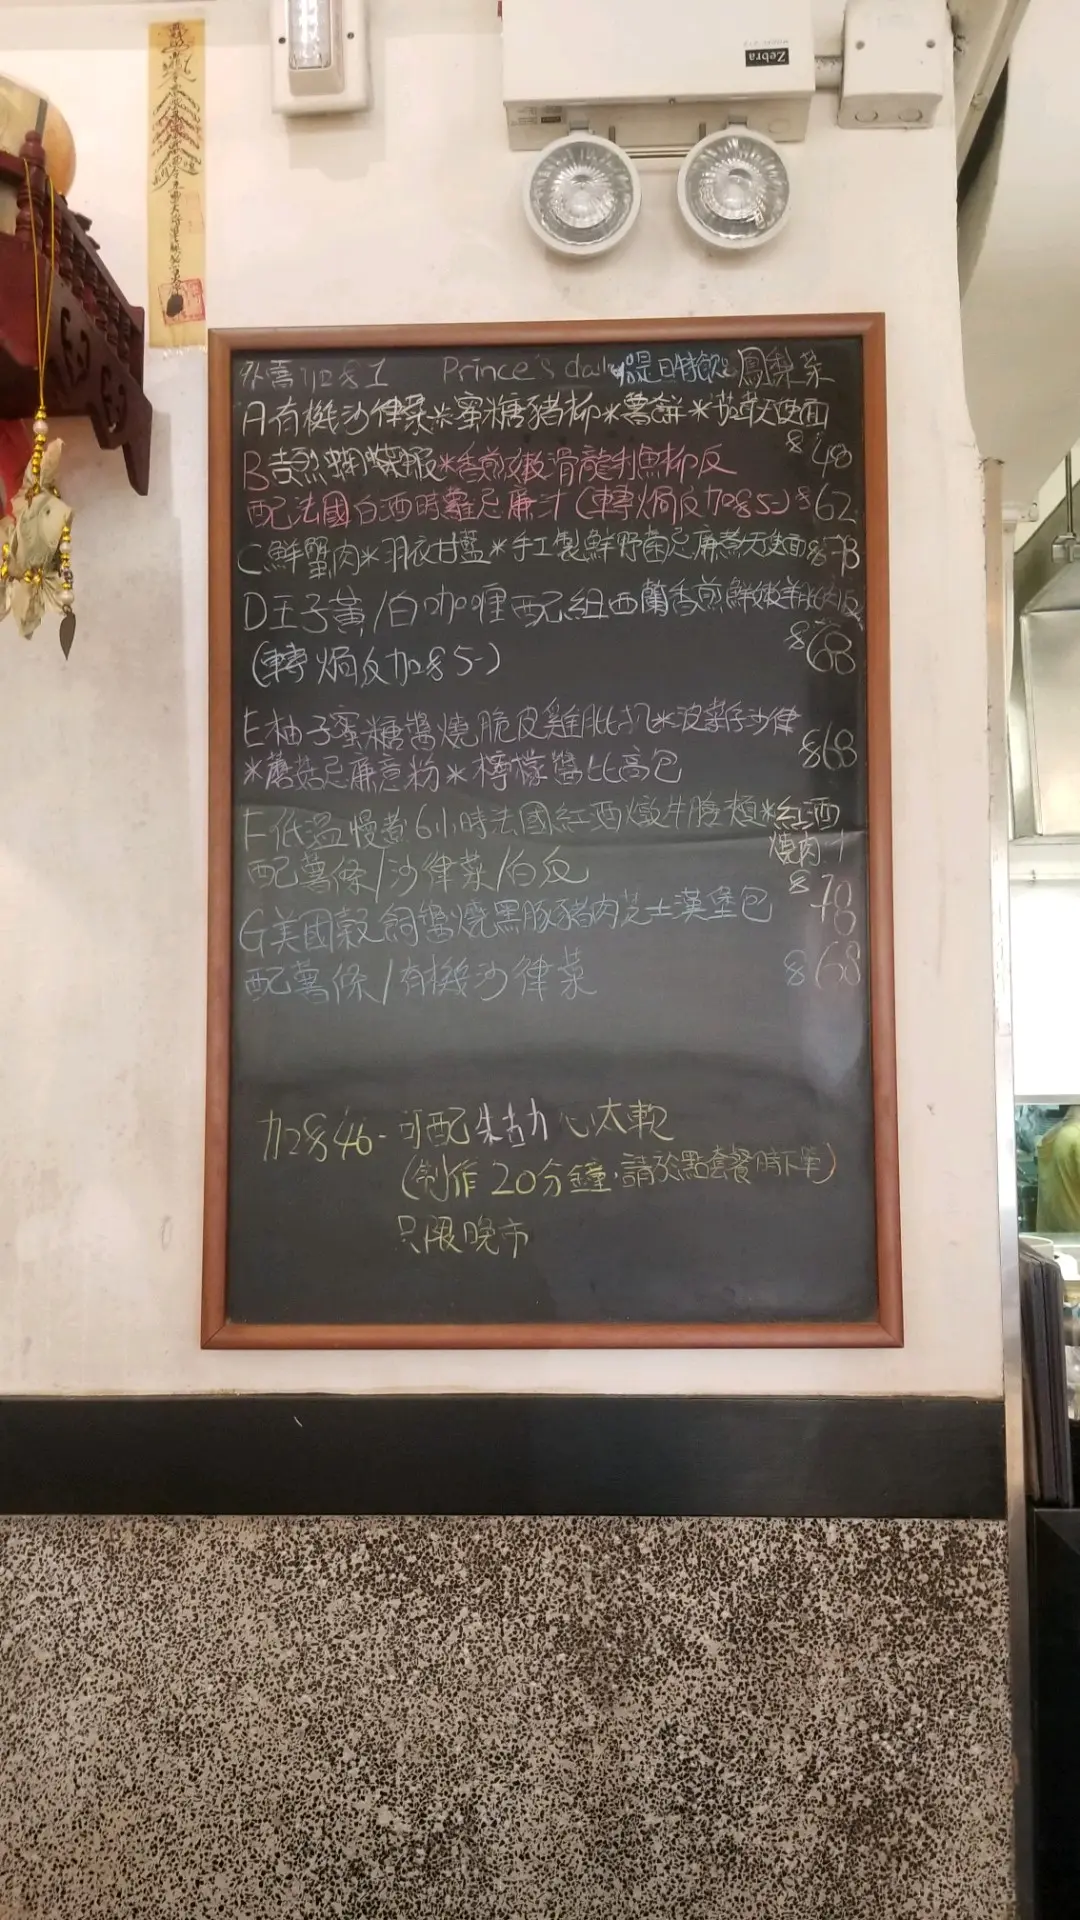 Zebra
外賣加$1 Prince's daily 是日特飲: 鳳梨菜
A有機沙律菜*蜜糖豬柳*薯餅*茄茸天使面
$48
B吉烈蝴蝶蝦*香煎嫩滑龍利魚柳反
配法國白酒時蘿忌廉汁(轉焗反加$5-) $62
C鮮蟹肉*羽衣甘藍*手工製鮮野菌忌廉煮天使面 $78
D王子黃/白咖喱配紐西蘭香煎鮮嫩羊
$68
(轉焗反加$5-)
E柚子蜜糖醬燒脆皮雞肶扒*波菜仔沙律
$68
*蘑菇忌廉意粉*檸檬醬比高包
F低溫慢煮6小時法國紅酒燉牛臉頰*紅酒
燒肉汁
配薯條/沙律菜/白反
$78
G美國穀飼醬燒黑豚豬肉芝士漢堡包
配薯條/有機沙律菜 $68
加$46-可配朱古力心太軟
(制作20分鐘,請於點套餐時下單)
只限晚市